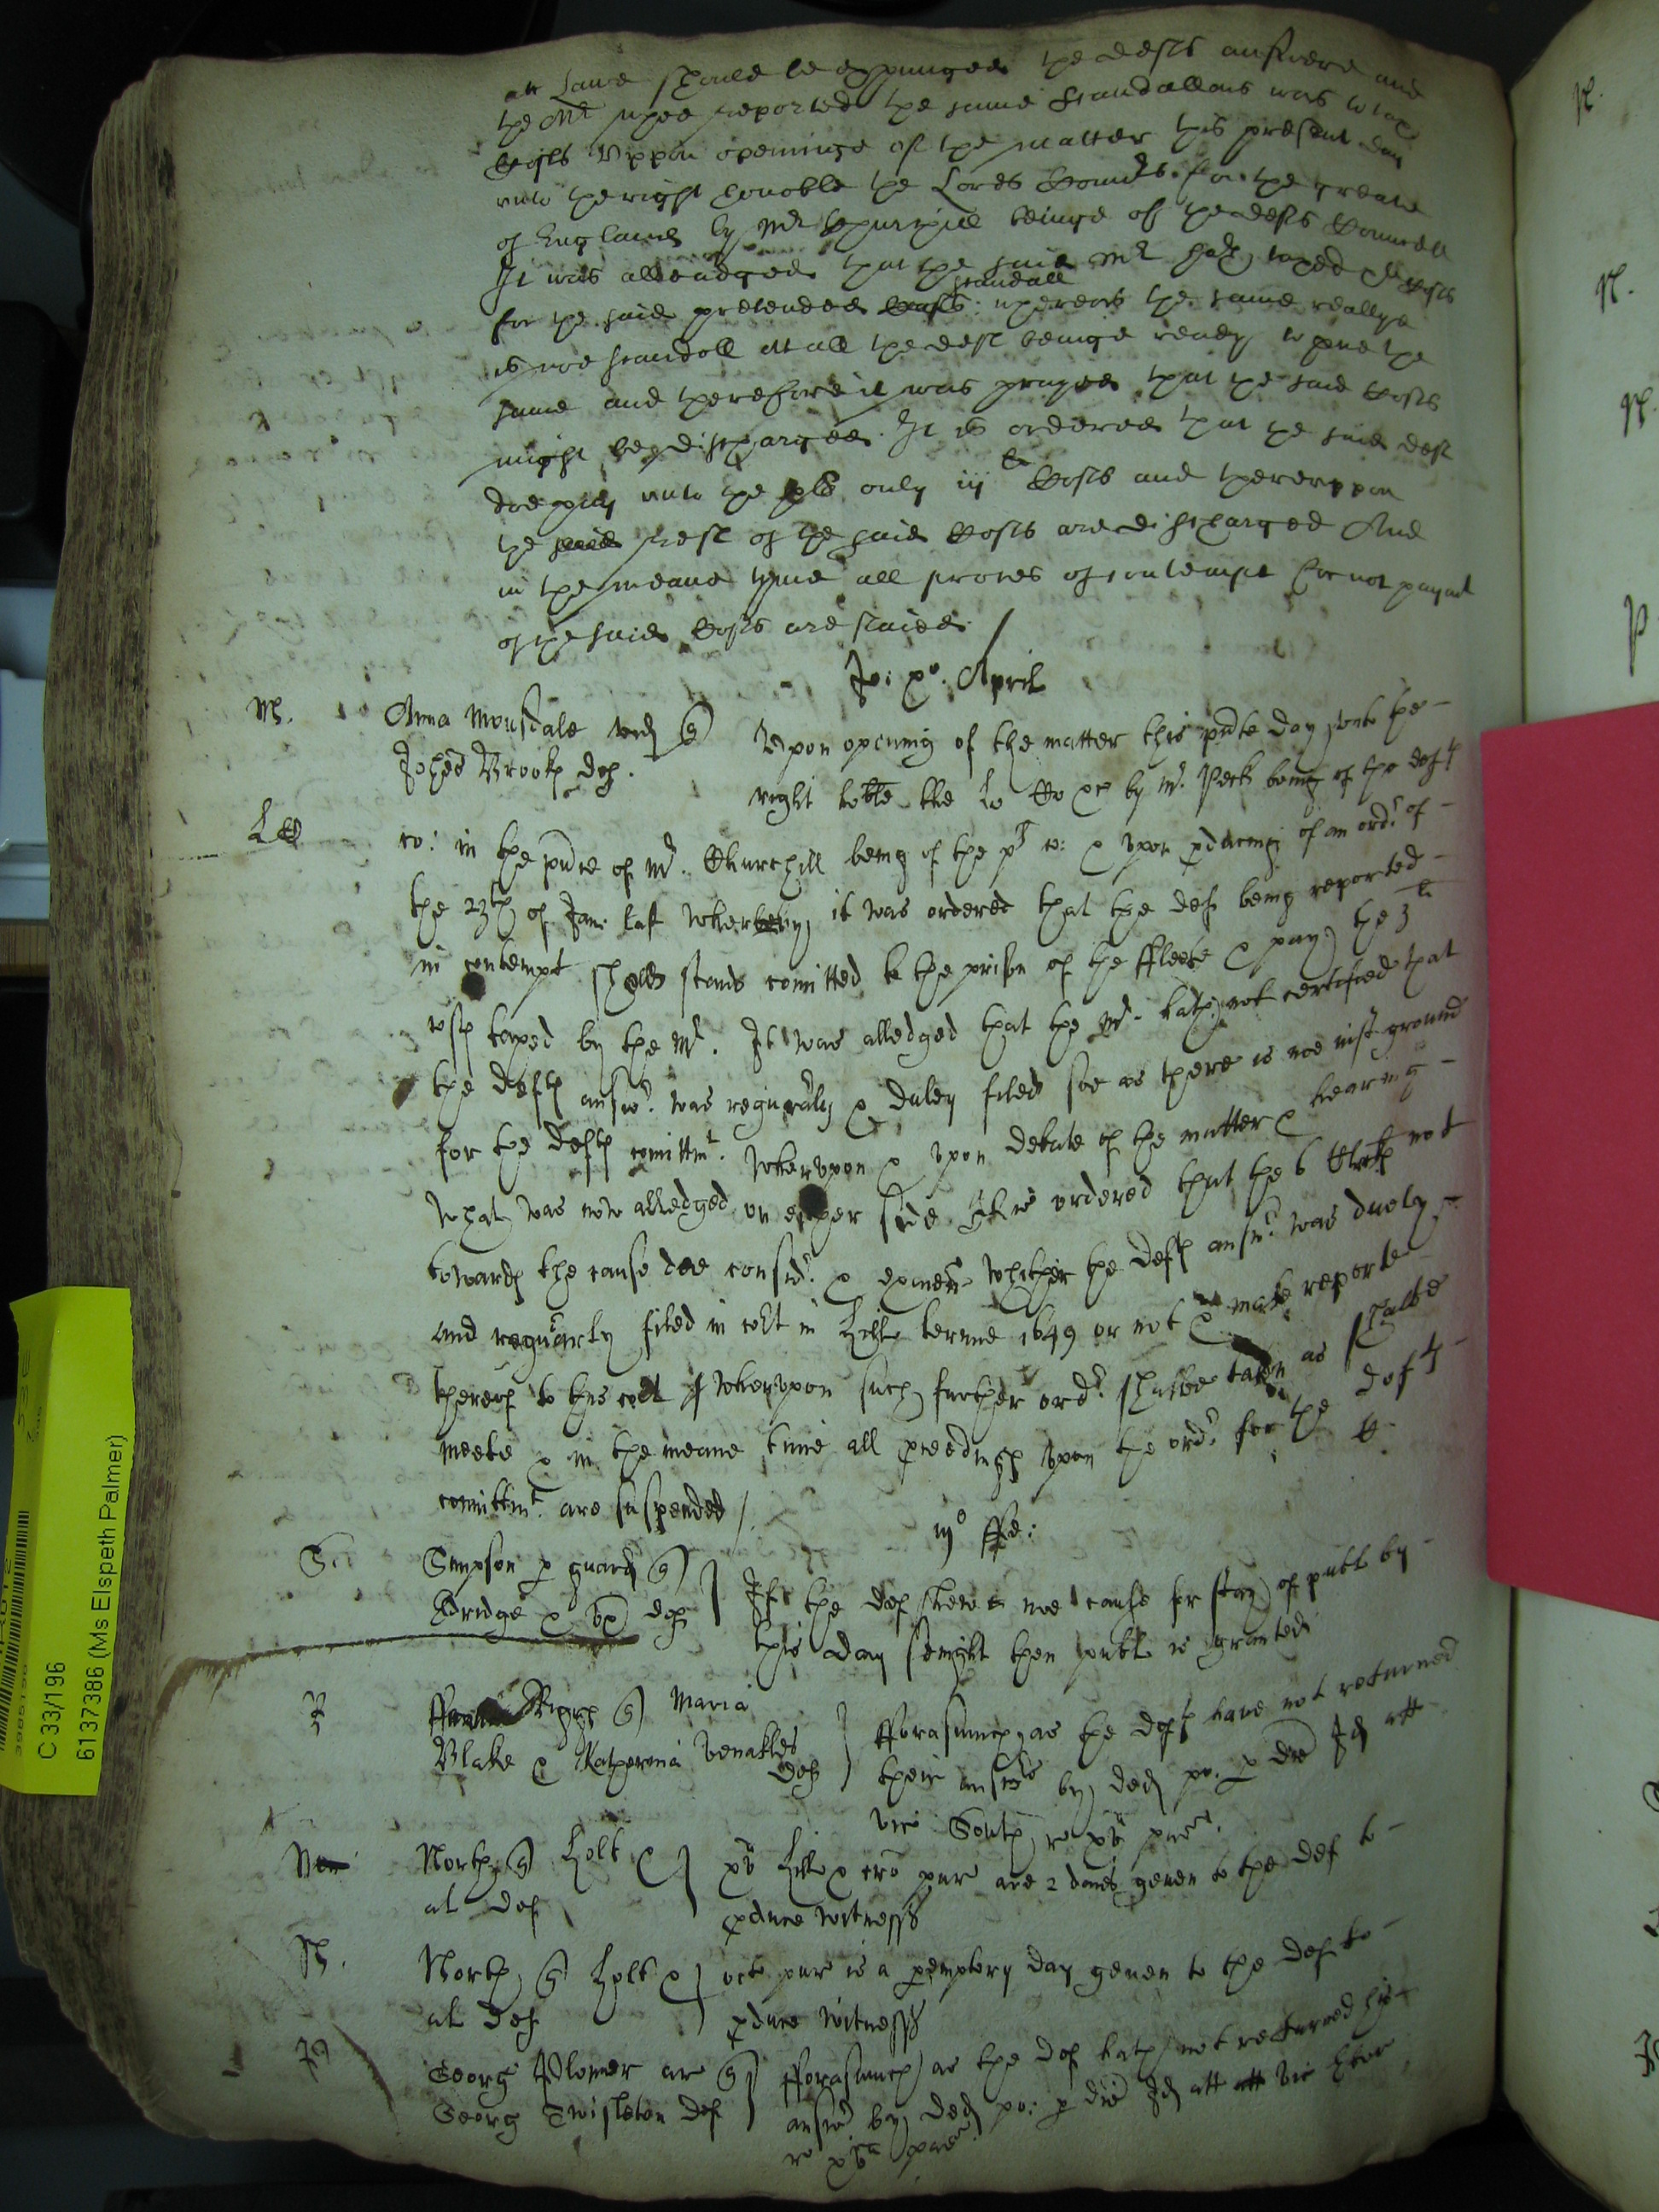 att Lawe should be expunged the defts answere and
the Mr whoe reported the same scandallous was to tax
Costs Uppon openinge of the matter this present day
unto the right honoble the Lords Comrs for the greate
of England by Mr Churchill beinge of the defts Councell
It was alleadged that the said Mr hath taxed Costs
scandall
for the said pretended Costs: whereas the same reallye
is noe scandall att all the deft beinge ready to prve the
same and therefore it was prayed that the said Costs
might be discharged. It is ordered that the said deft
doe pay unto the plt only iij li Costs and thereuppon
the said rest of the said Costs are discharged And
in the meane tyme all proces of contempt for not paymt
of the said Costs are staied /
Jo: xo. April
Anna Monsdale vid q
Johes Brooke def.
Upon opening of the matter this pnte day unto the
right hoble the Lo Co by Mr. Peck being of the deftes
co: in the pnce of Mr. Churchill being of the pts co: & upon pducing of an ordr of
the 23th of Jan: last wherby it was ordered that the deft being reported
in contempt should stand comitted to the prison of the ffleete & pay the 3 li
costs taxed by the Mr. It was alledged that the Mr. hath not certified that
the deftes answr. was regularly & duley filed soe as there is noe just ground
for the deftes comittmt. wherupon & upon debate of the matter & hearing
what was now alledged on either side It is ordered that the 6 Clerkes not
towards the cause doe considr. & exmne whither the deftes answr. was duely
and regularly filed in cort in Hill terme 1649 or not & make reporte
thereof to this cort wherupon such further ordr. shalbe taken as shalbe
meete & in the meane time all pceedings upon the ordr for the deftes
comittmt. are suspended /.
iijo ffe:
Simpson p guard q
Bridge & ux def
If the def shewe noe cause for stay of publ by
this day senight then publ is granted
Riggs q Maria
Blake & Katherina Venables
def
fforasmuch as the deftes have not returned
their answrs by ded po. p dre Id att
vic South re xva pur.
North q Holt &
al def
xv Hill & cro pur are 2 daies geven to the def to
pduce witnesses
North q Holt &
al def
octo pur is a pemptory day geven to the def to
pduce witnesses
Georg Plomer ar q
Georg Twisleton def
fforasmuch as the def hath not returned his
answr by ded po: p dre Id att att vic Ebor
re xva pur
C 33/196
6137386 (Ms Elspeth Palmer)